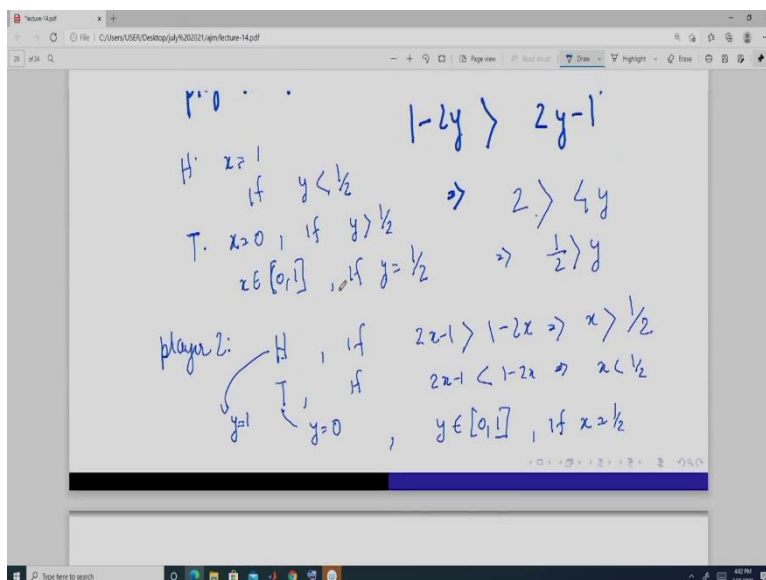 *lecture-14.pdf
File | C:/Users/USER/Desktop/july%202021/ajm/lecture-14.pdf
20 of 24 Page view Read aloud Draw Highlight Erase
1-2y > 2y-1
H. x=1
if y<1/2 ⇒ 2 > 4y
T. x=0, if y>1/2
x∈[0,1], if y=1/2 ⇒ 1/2 > y
player 2: H, if 2x-1 > 1-2x ⇒ x > 1/2
T, if 2x-1 < 1-2x ⇒ x < 1/2
y=1 y=0, y∈[0,1], if x=1/2
Type here to search
4:02 PM